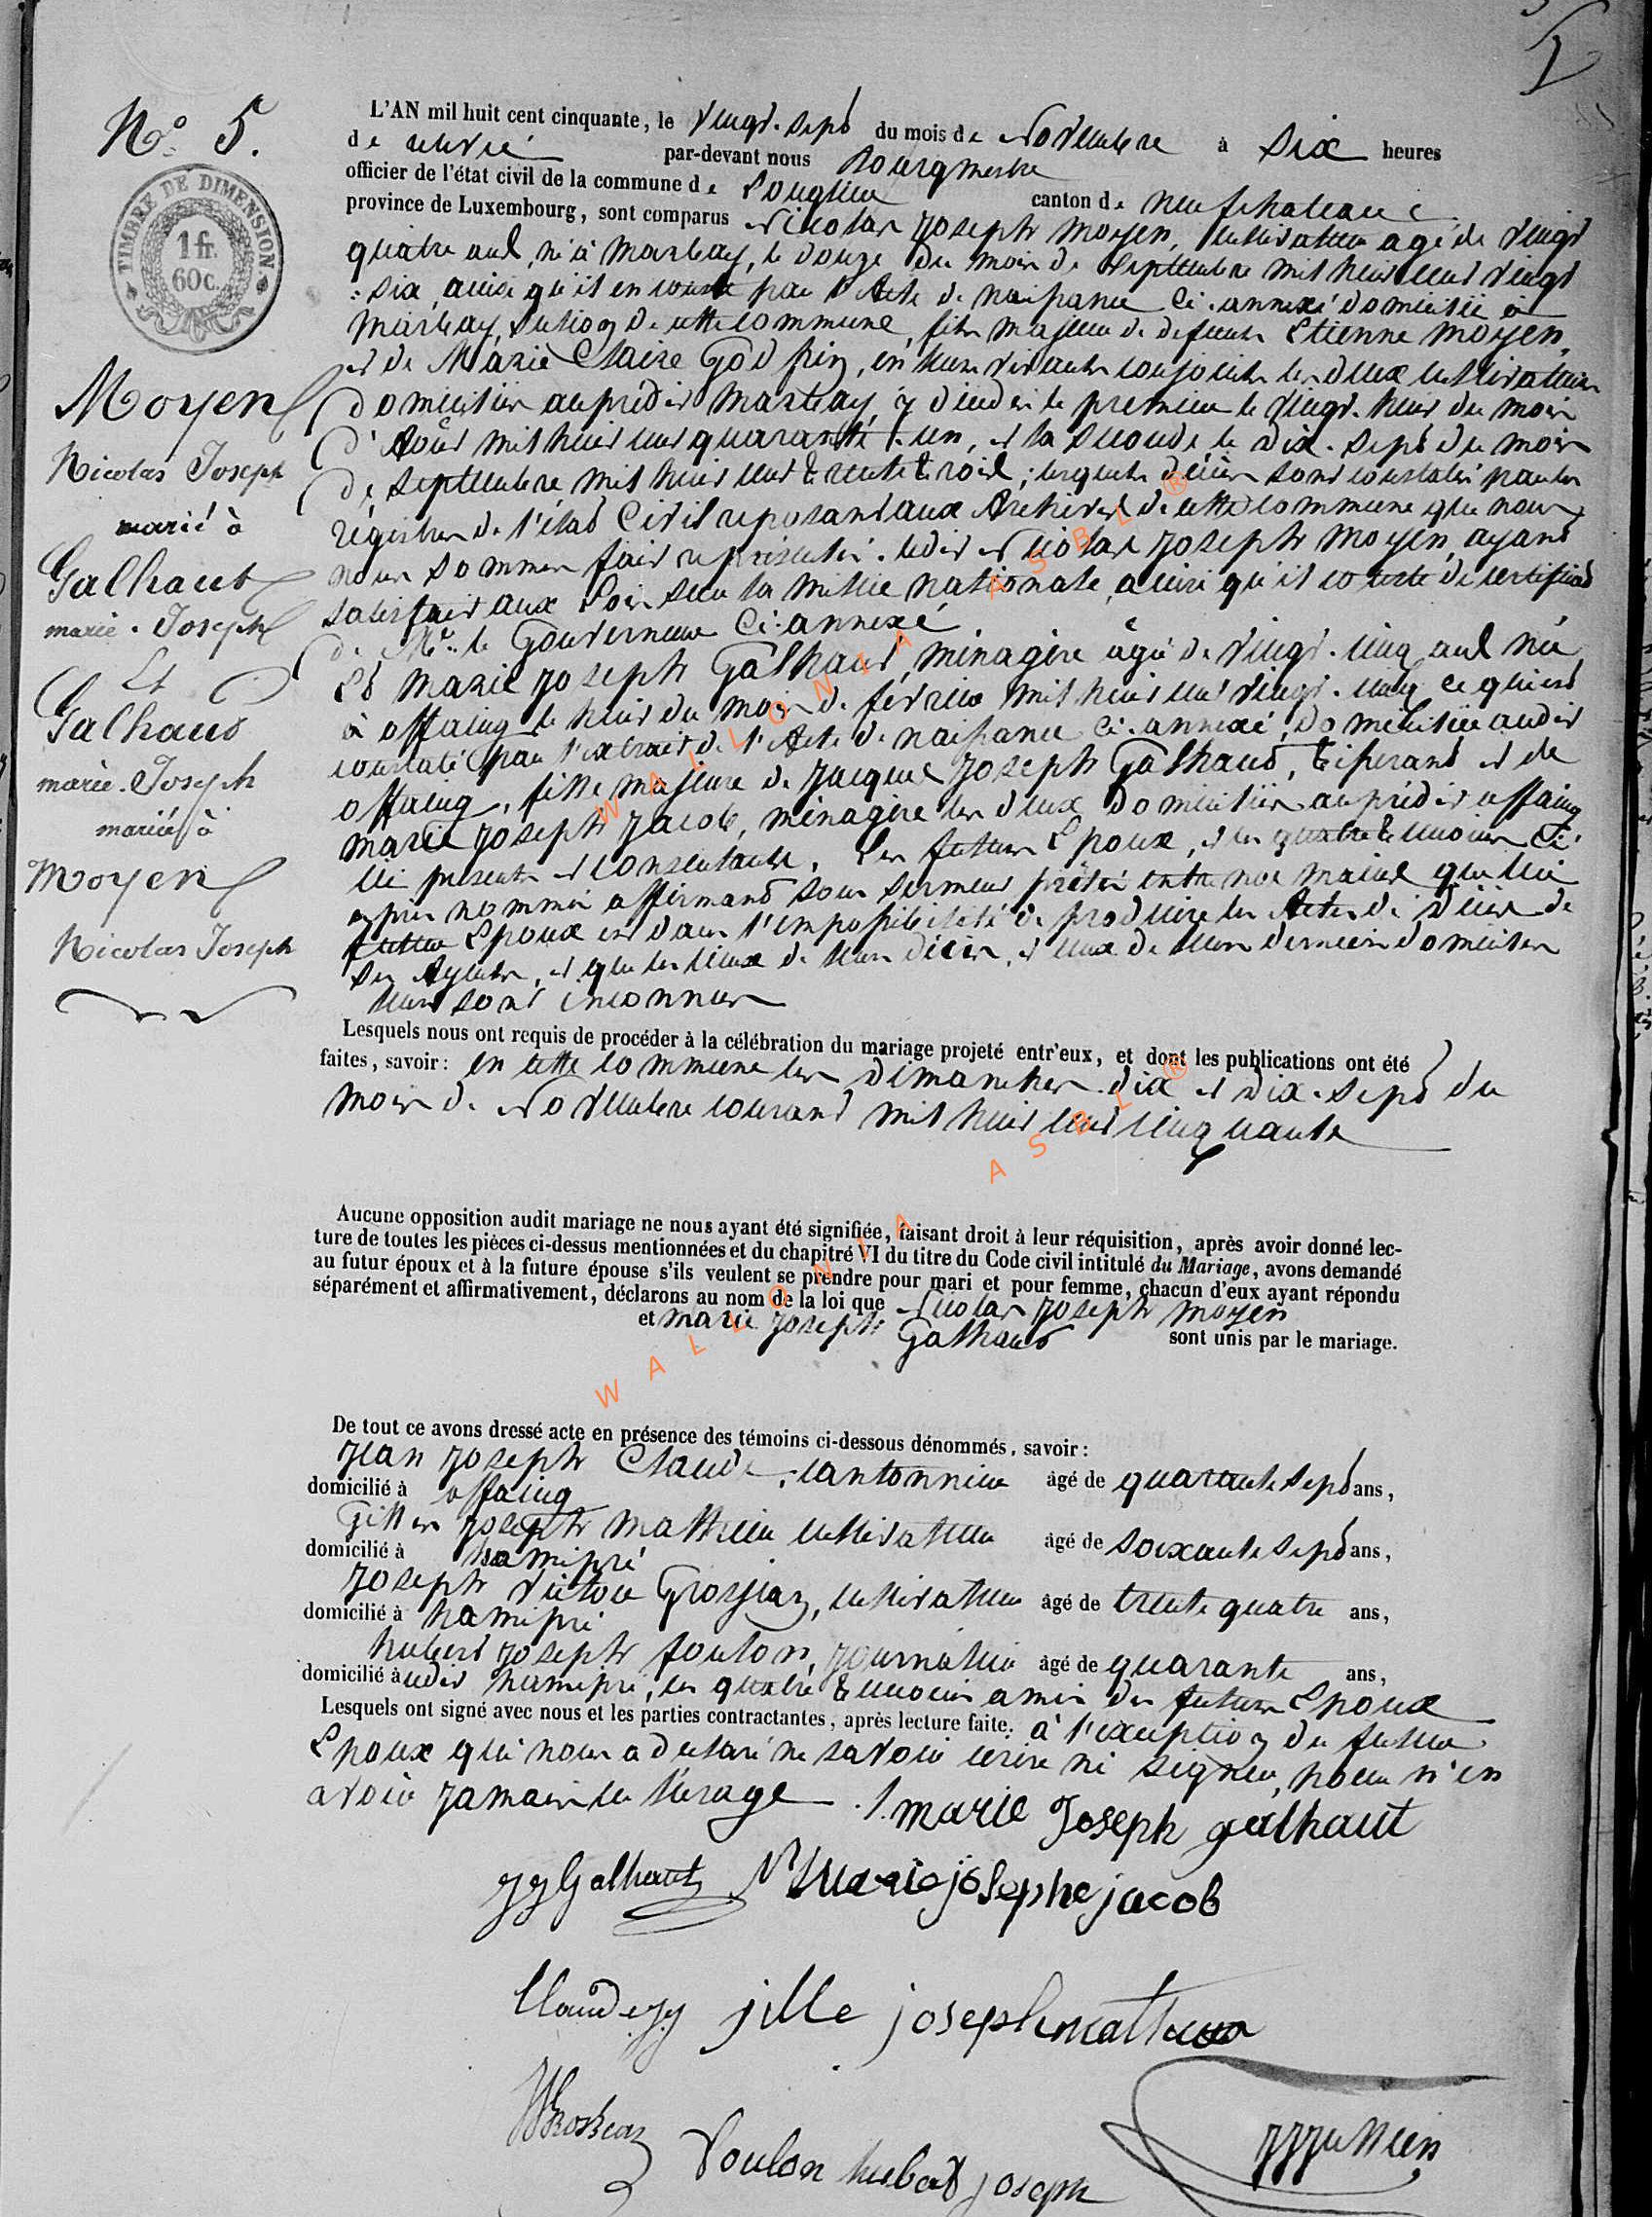 N.o 5.
TIMBRE DE DIMENSION
1 fr.
60 c.
Moyen
Nicolas Joseph
marié à
Galhaut
marie. Joseph
Et
Galhaut
marie. Joseph
mariée à
Moyen
Nicolas Joseph
L'AN mil huit cent cinquante, le vingt. sept du mois de Novembre à six heures
de relevée par-devant nous Bourgmestre
officier de l'état civil de la commune de Longlier canton de neufchateau
province de Luxembourg, sont comparus Nicolas Joseph Moyen, cultivateur agé de vingt
quatre ans, né à Marbay, le douze du mois de Septembre mil huit cent vingt
: six, ainsi qu'il en conste par l'Acte de naissance ci-annexé domicilié à
Marbay, section de cette commune, fils majeur de defunts Etienne Moyen,
et de Marie Claire Godfrin, en leur vivants conjoints les deux cultivateurs
domiciliés auprédit Marbay, y décédés le premier le vingt. huit du mois
d'Août mil huit cent quarante. un, et la seconde le dix. sept du mois
de septembre mil huit cent trente trois; lesquels décès sont constatés par les
régistres de l'état Civil reposant aux Archives de cette commune que nous
nous sommes fait représenter. ledit Nicolas Joseph Moyen, ayant
satisfait aux Lois sur la milice nationale, ainsi qu'il conste du certificat
de Mr. le Gouverneur Ci-annexé
Et Marie Joseph Galhaut, ménagère âgée de vingt. cinq ans née
à offaing le huit du mois de février mil huit cent vingt. cinq ce qui est
constaté par l'extrait de l'Acte de naissance ci-annexé, domiciliée audit
offaing, fille majeure de Jacque Joseph Galhaut, tisserand et de
Marie Joseph Jacob, ménagère les deux domiciliés auprédit offaing
ici présents et consentants. Les futurs Epoux, et les quatre témoins Ci-
après nommés affirmant sous serment prêté entre nos mains que le
futur Epoux est dans l'impossibilité de produire les Actes de décès de
ses Ayeuls, et que les lieux de leurs décès, et ceux de leurs derniers domiciles
leur sont inconnus
Lesquels nous ont requis de procéder à la célébration du mariage projeté entr'eux, et dont les publications ont été
faites, savoir: en cette commune les dimanches dix et dix. sept du
mois de Novembre courant mil huit cent cinquante
Aucune opposition audit mariage ne nous ayant été signifiée, faisant droit à leur réquisition, après avoir donné lec-
ture de toutes les pièces ci-dessus mentionnées et du chapitre VI du titre du Code civil intitulé du Mariage, avons demandé
au futur époux et à la future épouse s'ils veulent se prendre pour mari et pour femme, chacun d'eux ayant répondu
séparément et affirmativement, déclarons au nom de la loi que Nicolas Joseph Moyen
et Marie Joseph Galhaut sont unis par le mariage.
De tout ce avons dressé acte en présence des témoins ci-dessous dénommés, savoir:
Jean Joseph Claude, cantonnier âgé de quarante sept ans,
domicilié à offaing
Gilles Joseph Mathieu cultivateur âgé de soixante sept ans,
domicilié à hamipré
Joseph Victor Grosjean, cultivateur âgé de trente quatre ans,
domicilié à hamipré
hubert Joseph foulon, Journalier âgé de quarante ans,
domicilié audit hamipré, les quatre témoins amis des futurs Epoux
Lesquels ont signé avec nous et les parties contractantes, après lecture faite. à l'exception du futur
Epoux qui nous a déclaré ne savoir écrire ni signer, pour n'en
avoir Jamais eu l'usage
marie Joseph galhaut
JJ Galhaut Marie josephe jacob
Claude JJ jille joseph mathieu
foulon hubert joseph
WALLONIA ASBL ®
WALLONIA ASBL ®